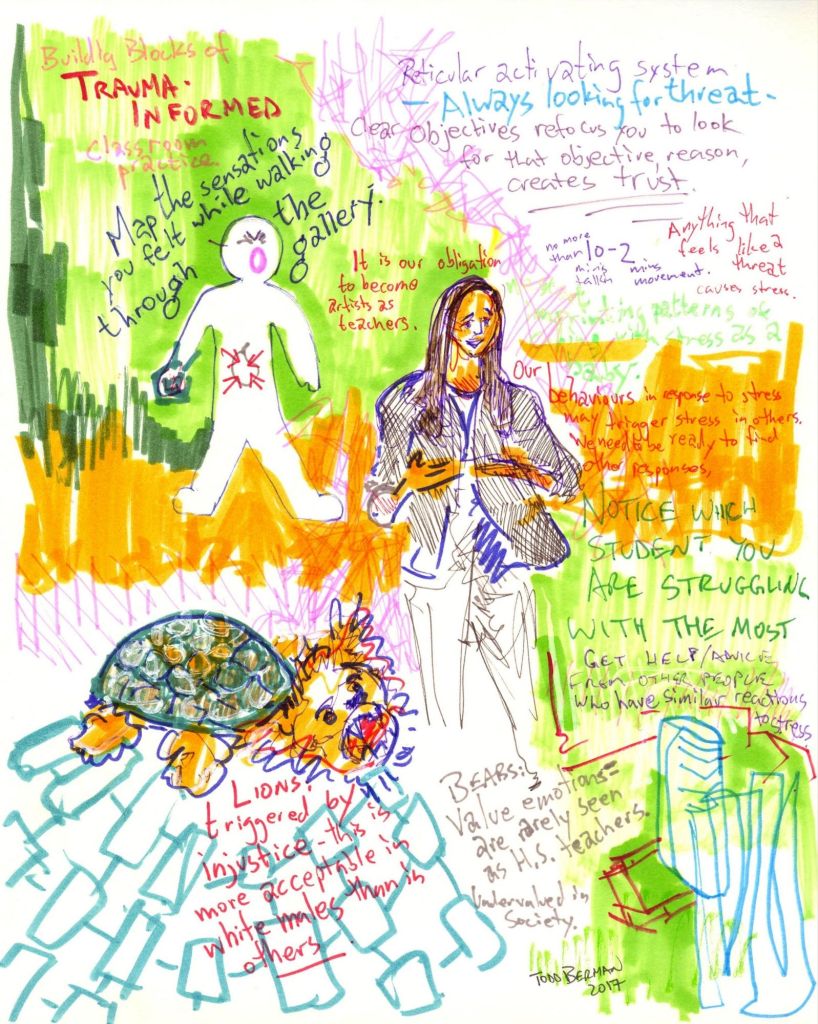 Buildig Blocks of
TRAUMA-
INFORMED
Classroom
practice.
Map the sensations
you felt while walking
through the
gallery.
Reticular activating system
- Always looking for threat -
Clear Objectives refocus you to look
for that objective, reason,
creates trust.
It is our obligation
to become
artists as
teachers.
no more
than 10-2
mins mins
talkin movement.
Anything that
feels like a
threat
causes stress.
patterns of
with stress as a
Our behaviours in response to stress
may trigger stress in others.
We need to be ready to find
other responses.
NOTICE WHICH
STUDENT YOU
ARE STRUGGLING
WITH THE MOST
GET HELP/ADVICE
FROM OTHER PEOPLE
WHO have similar reactions
to stress
LIONS:
triggered by
injustice - this is
more acceptable in
white males than in
others
BEARS:
Value emotions =
are rarely seen
as H.S. teachers.
Undervalued in
Society.
TODD BERMAN
2017